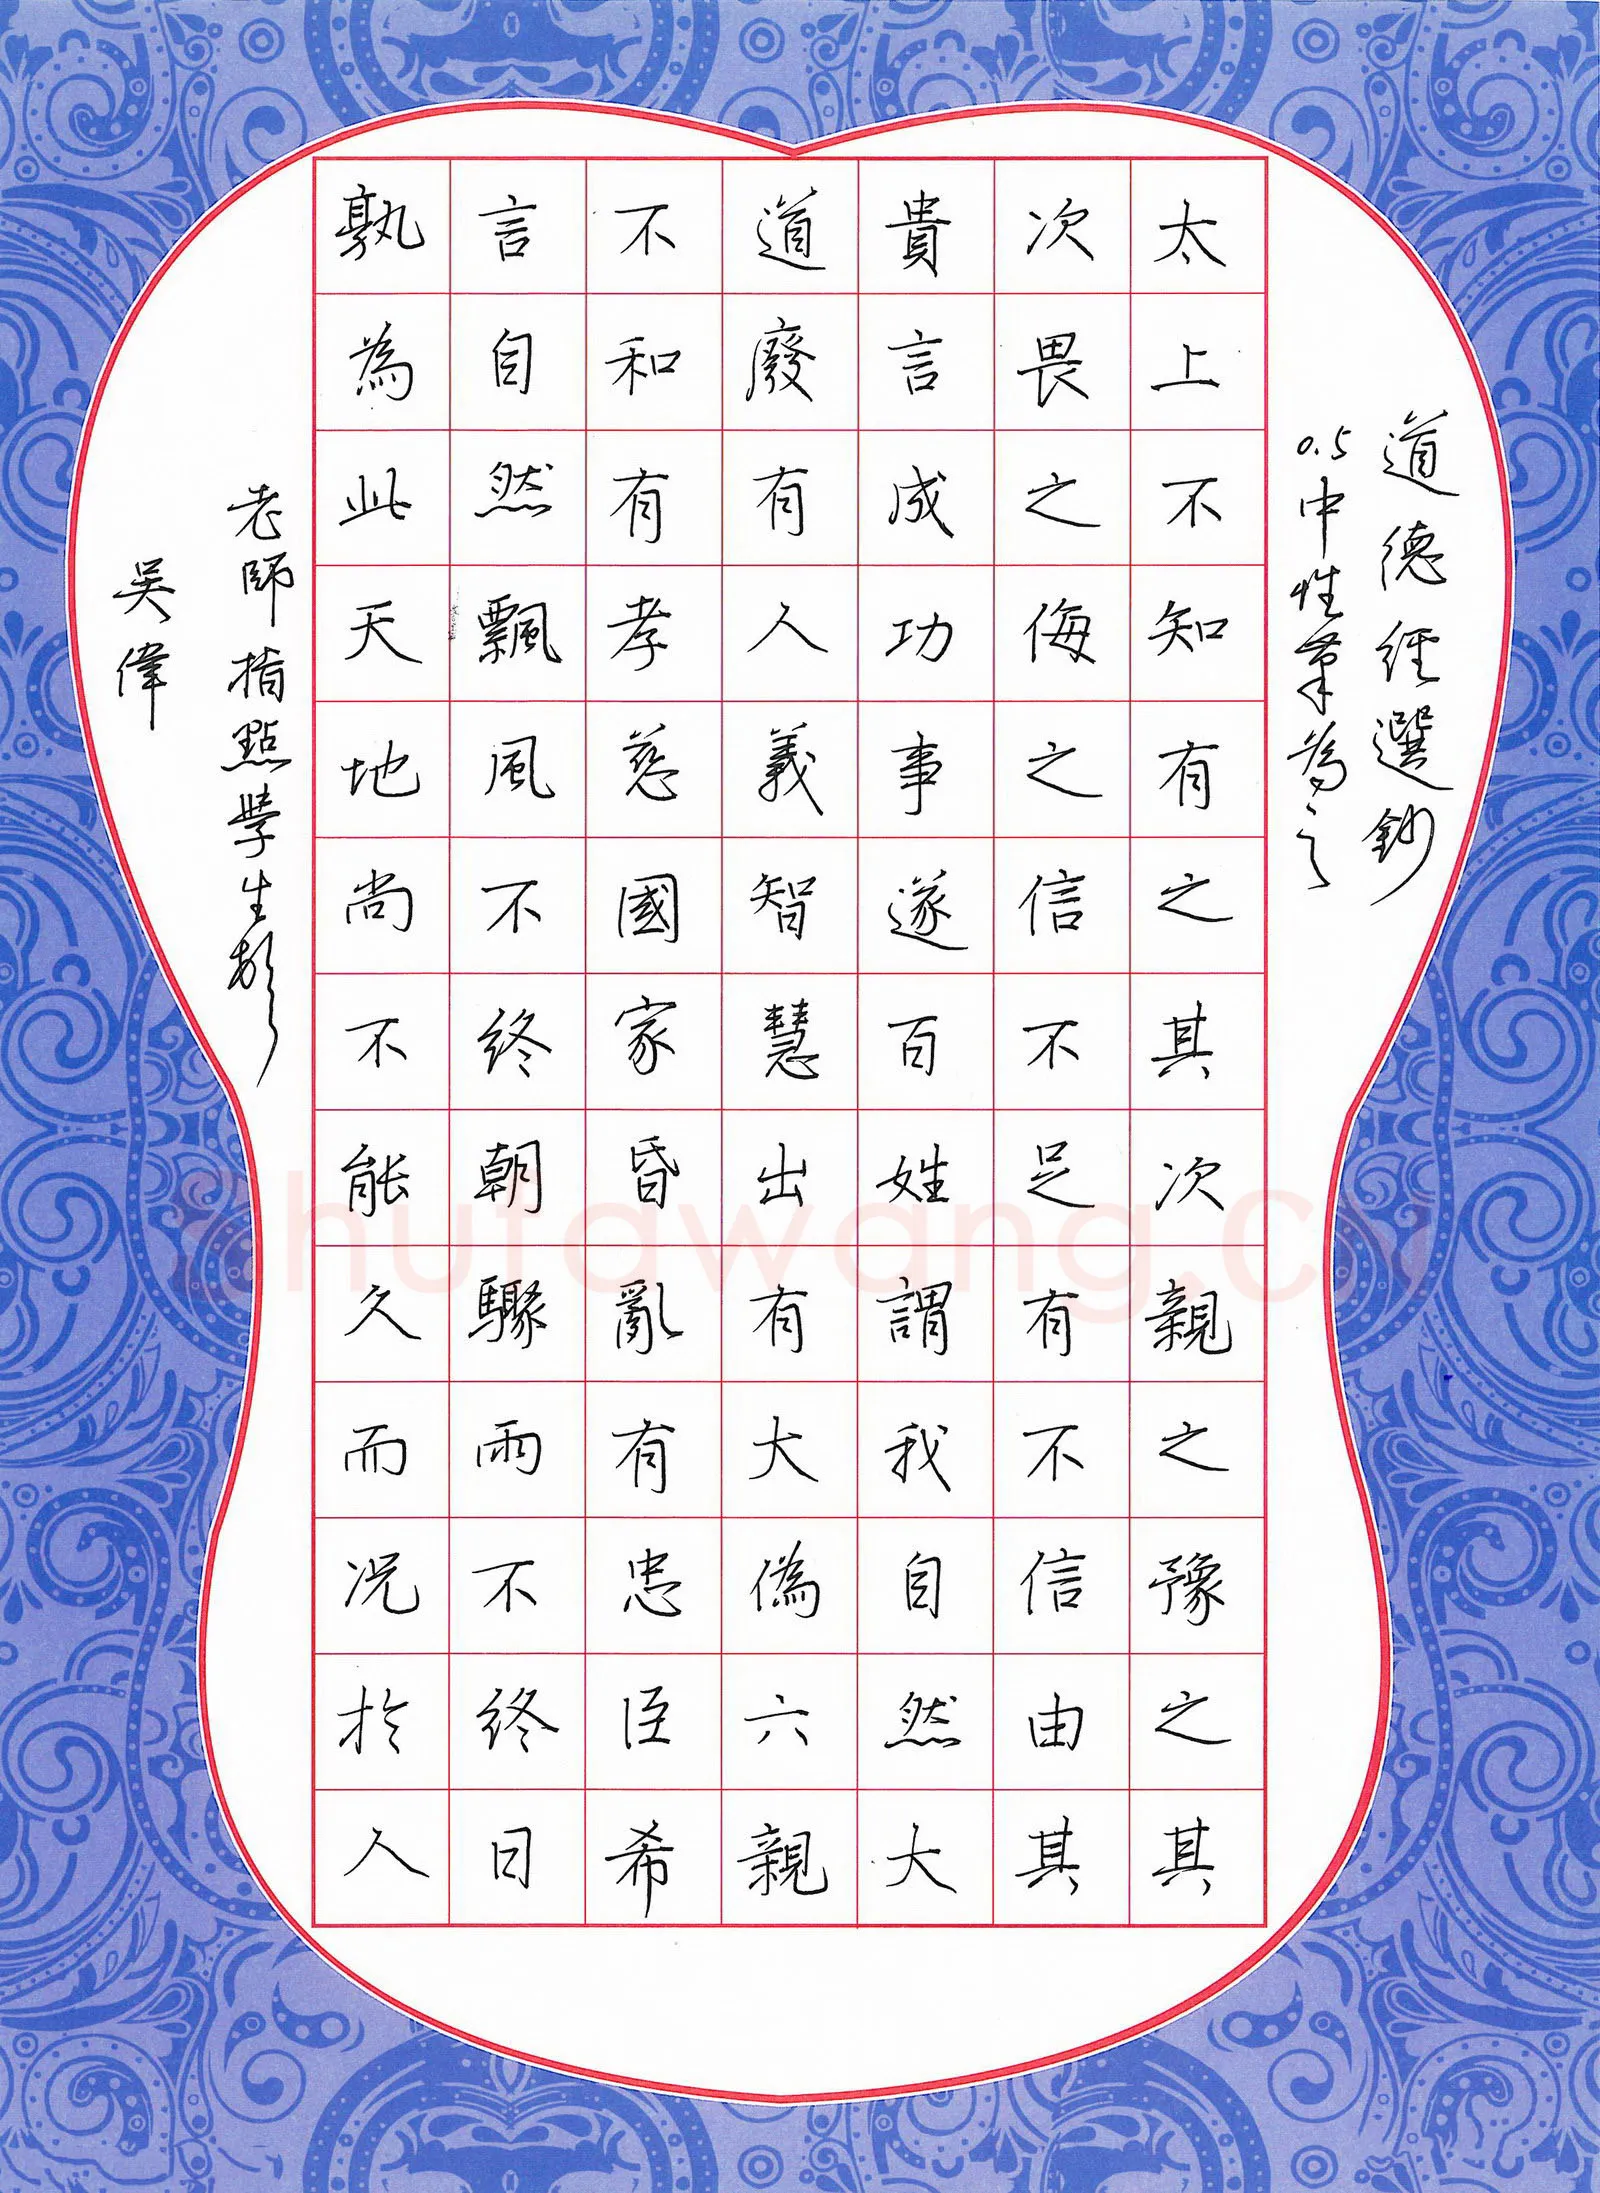 道德經選鈔
0.5中性筆為之
太上不知有之其次親之豫之其
次畏之侮之信不足有不信由其
貴言成功事遂百姓謂我自然大
道廢有人義智慧出有大偽六親
不和有孝慈國家昏亂有忠臣希
言自然飄風不終朝驟雨不終日
孰為此天地尚不能久而况於人
老師指點學生
吳偉
shufawang.cn